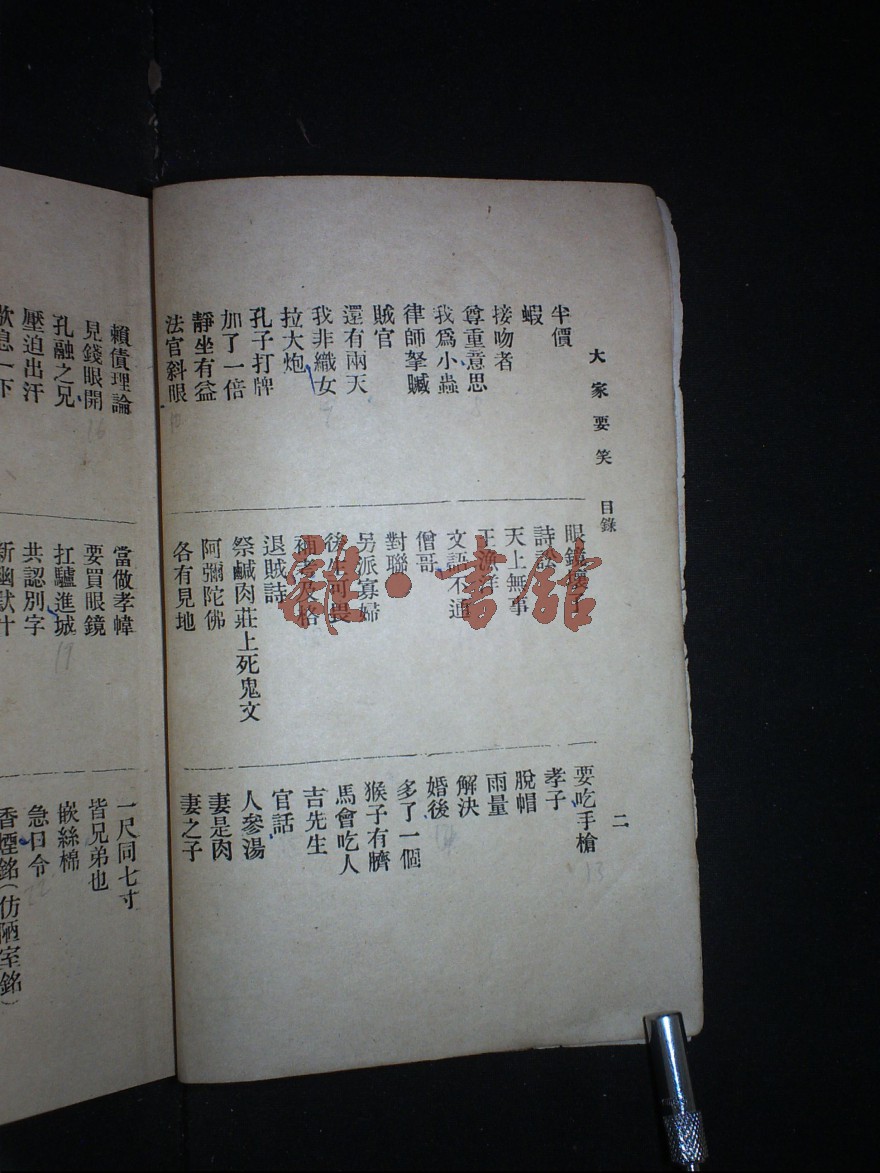 大家要笑 目錄 二
半價
蝦
接吻者
尊重意思
我為小蟲
律師拏贓
賊官
還有兩天
我非織女
拉大炮
孔子打牌
加了一倍
靜坐有益
法官斜眼
眼鏡壞了
詩訟
天上無事
王漁洋
文語不通
僧哥
對聯
另派寡婦
後生可畏
補考及格
退賊詩
祭鹹肉莊上死鬼文
阿彌陀佛
各有見地
要吃手槍
孝子
脫帽
雨量
解決
婚後
多了一個
猴子有臍
馬會吃人
吉先生
官話
人參湯
妻是肉
妻之子
賴債理論
見錢眼開
孔融之兄
壓迫出汗
歇息一下
當做孝幛
要買眼鏡
扛驢進城
共認別字
新幽默十
一尺同七寸
皆兄弟也
嵌絲棉
急口令
香煙銘(仿陋室銘)
雜·書館
13
16
19
22